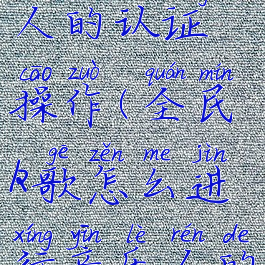 人的认证
cāo zuò quán mín
操作(全民
gē zěn me jìn
K歌怎么进
xíng yīn lè rén de
行音乐人的